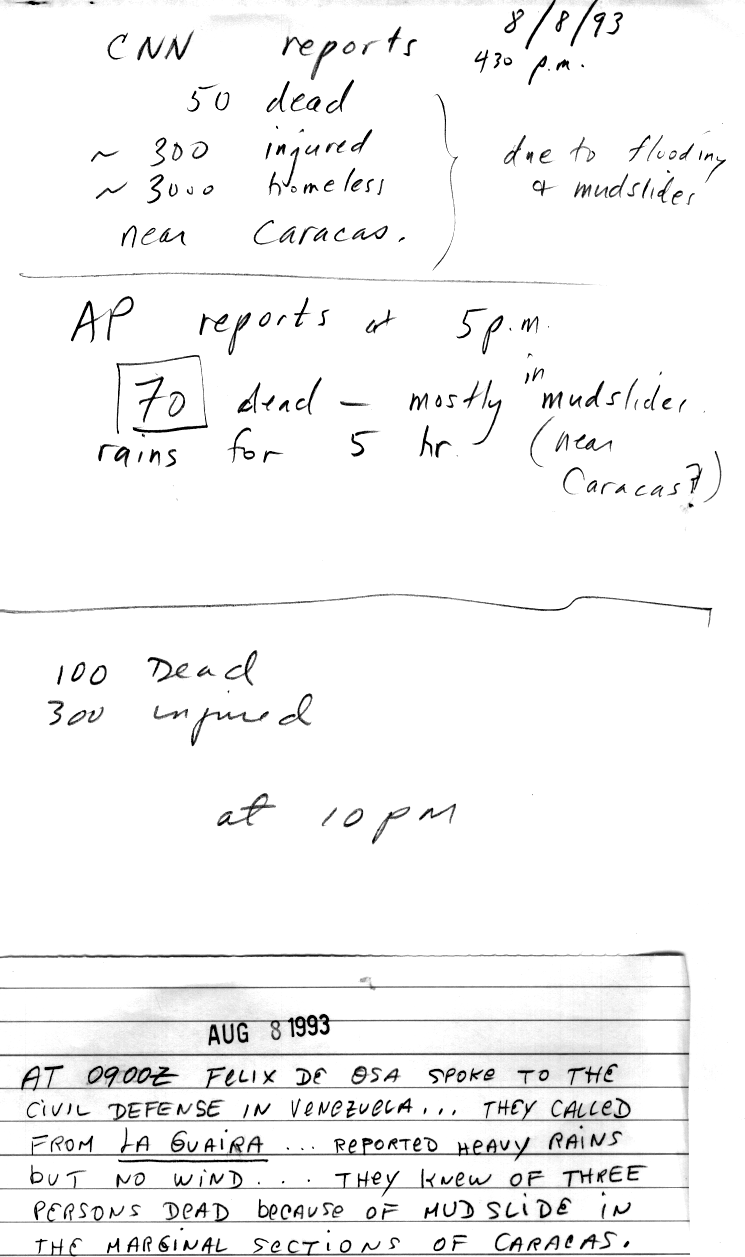 8/8/93
CNN reports 430 p.m.
50 dead
~ 300 injured due to flooding
~ 3000 homeless & mudslides
near Caracas.
AP reports at 5 p.m.
70 dead — mostly in mudslides
rains for 5 hr. (near
Caracas?)
100 Dead
300 injured
at 10 PM
AUG 8 1993
AT 0900Z FELIX DE OSA SPOKE TO THE
CIVIL DEFENSE IN VENEZUELA... THEY CALLED
FROM LA GUAIRA ... REPORTED HEAVY RAINS
BUT NO WIND.... THEY KNEW OF THREE
PERSONS DEAD BECAUSE OF MUDSLIDE IN
THE MARGINAL SECTIONS OF CARACAS.